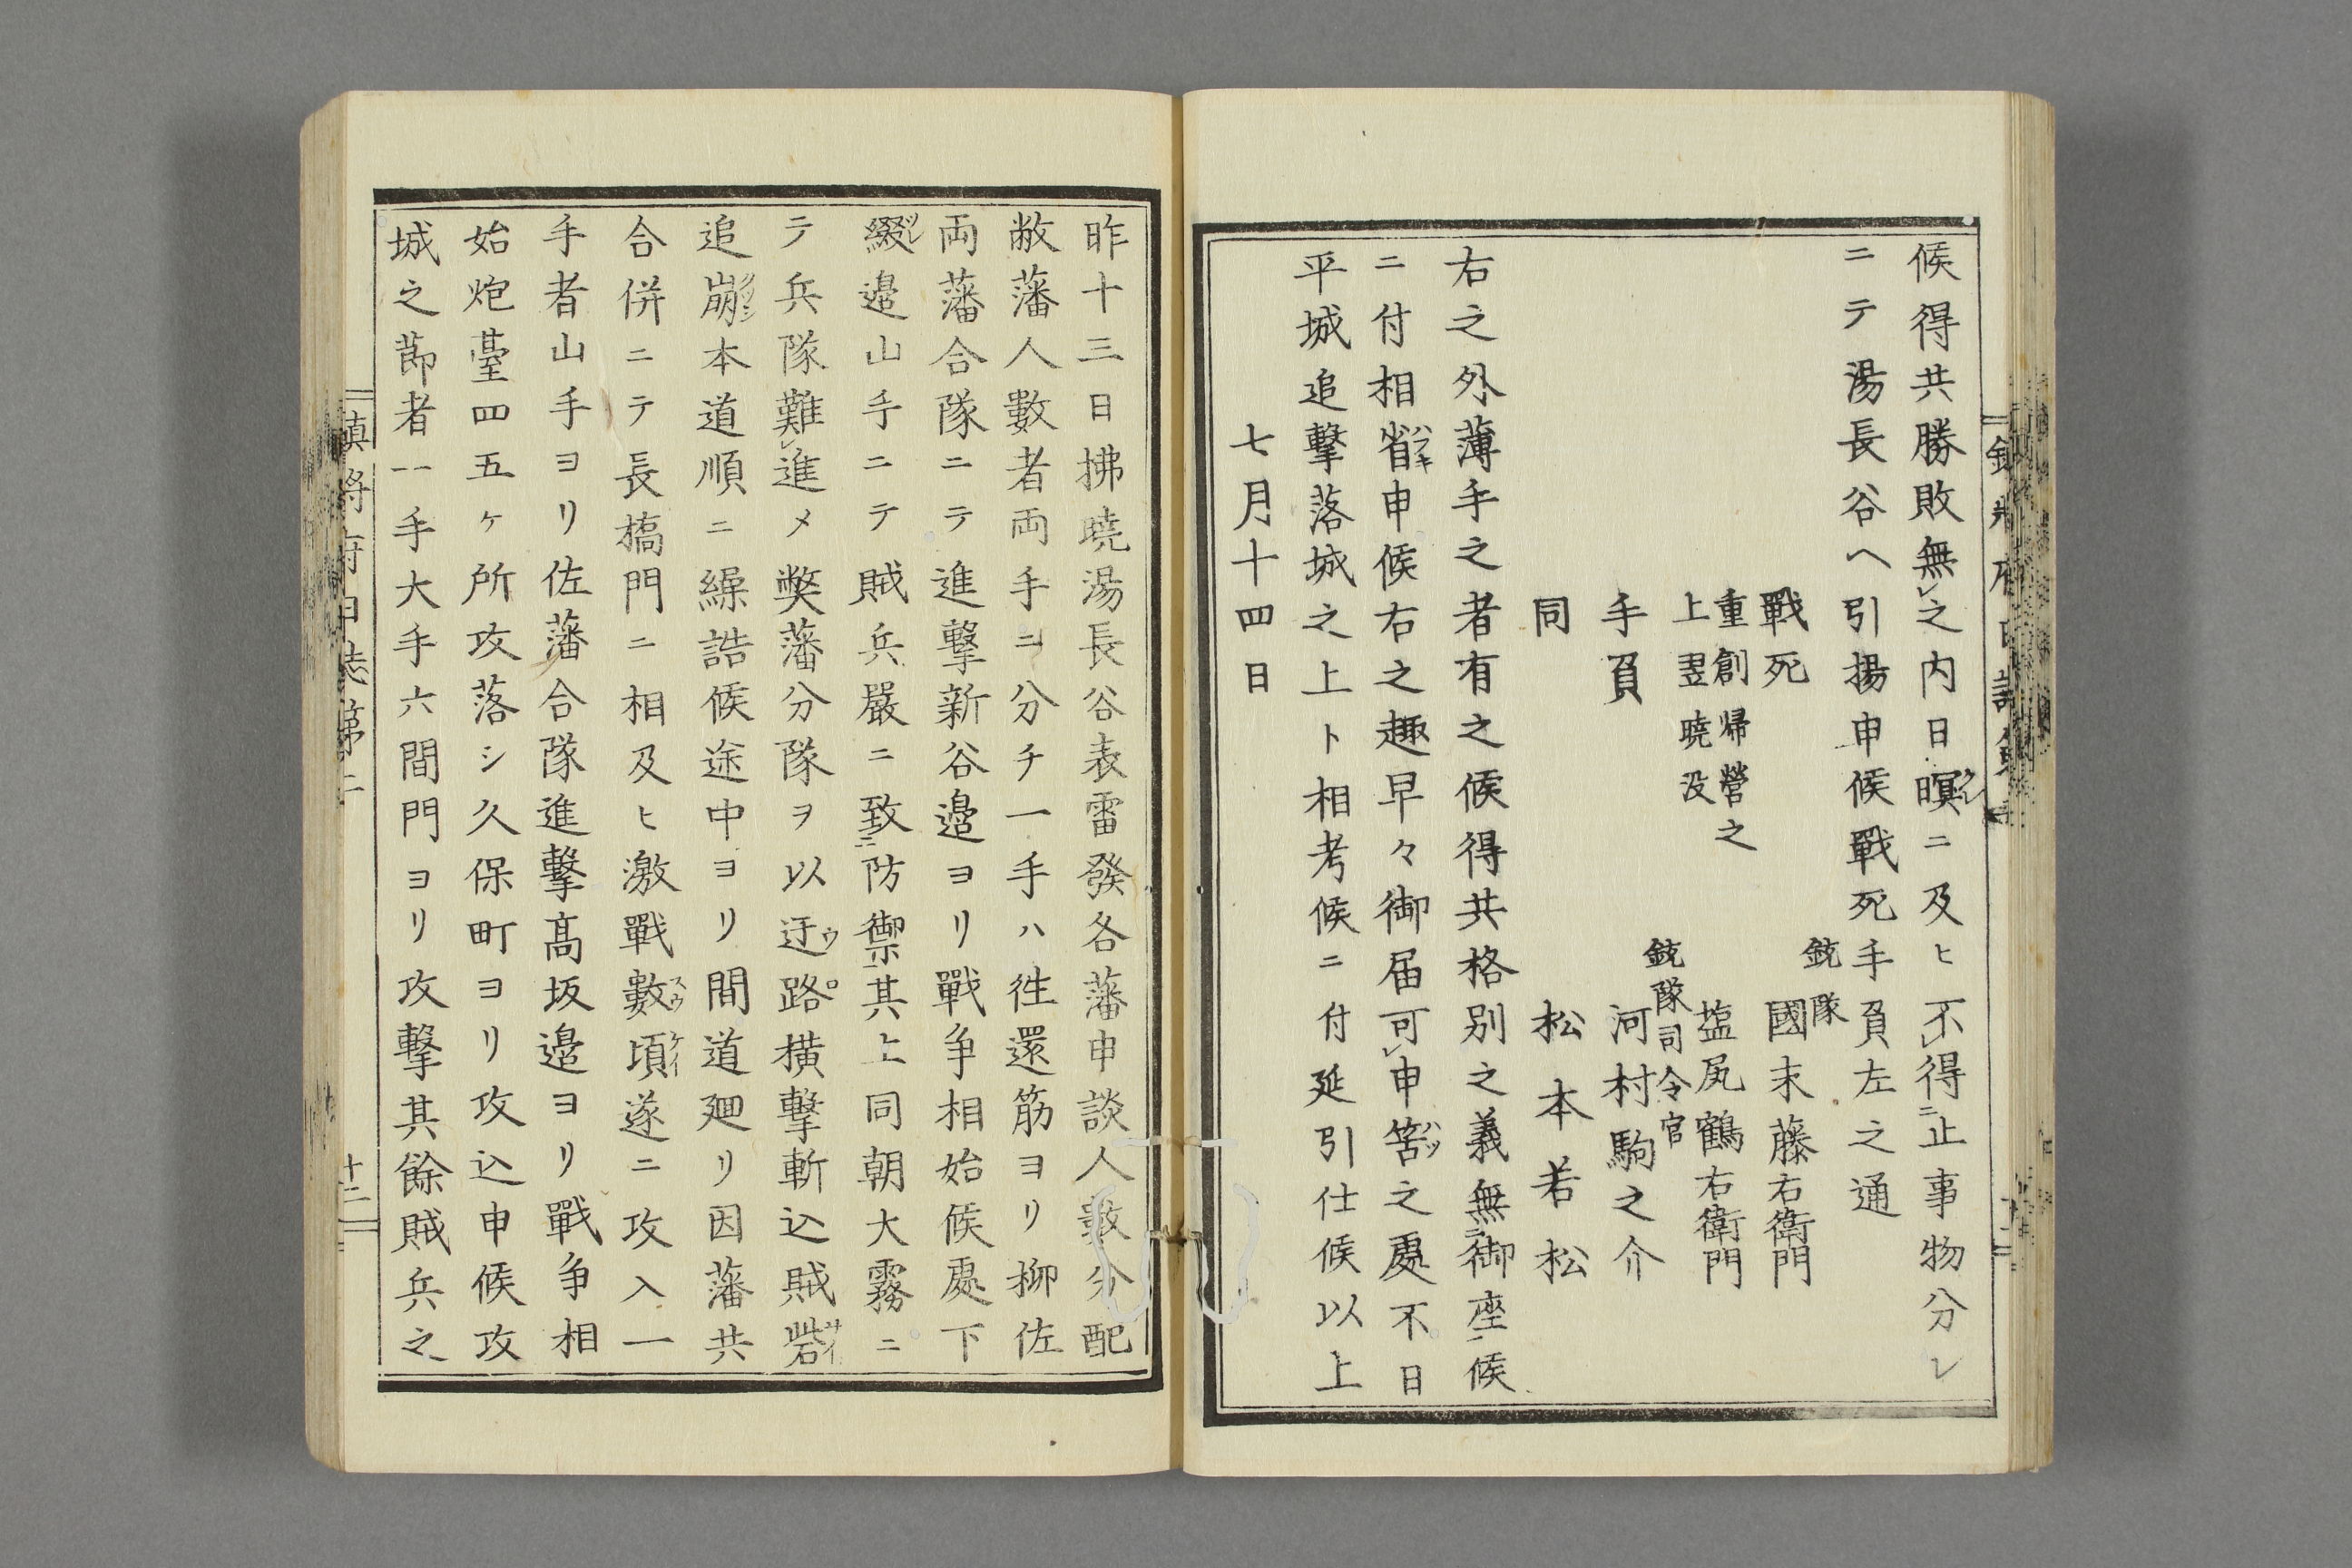 候得共勝敗無レ之内日暝クレニ及ヒ不レ得ニ止事物分レ
ニテ湯長谷ヘ引揚申候戰死手負左之通
銃隊
戰死　國末藤右衛門
重創帰營之
上翌曉没　塩尻鶴右衛門
銃隊司令官
手負　河村駒之介
同　松本若松
右之外薄手之者有之候得共格別之義無ニ御座一候
ニ付相省ハブキ申候右之趣早々御届可レ申筈ハツ之處不日
平城追撃落城之上ト相考候ニ付延引仕候以上
七月十四日
昨十三日拂曉湯長谷表雷發各藩申談人數分配
敝藩人數者両手ニ分チ一手ハ徃還筋ヨリ柳佐
両藩合隊ニテ進撃新谷邉ヨリ戰争相始候處下
綴邉山手ニテ賊兵嚴ニ致ニ防禦一其上同朝大霧ニ
テ兵隊難レ進メ獘藩分隊ヲ以迂ウ路ロ横撃斬込賊砦サイ
追崩クツシ本道順ニ繰詰候途中ヨリ間道廻リ因藩共
合併ニテ長橋門ニ相及ヒ激戰數スウ頃ケイ遂ニ攻入一
手者山手ヨリ佐藩合隊進撃髙坂邉ヨリ戰争相
始炮臺四五ケ所攻落シ久保町ヨリ攻込申候攻
城之莭者一手大手六間門ヨリ攻撃其餘賊兵之
鎮将府日誌第二
十二